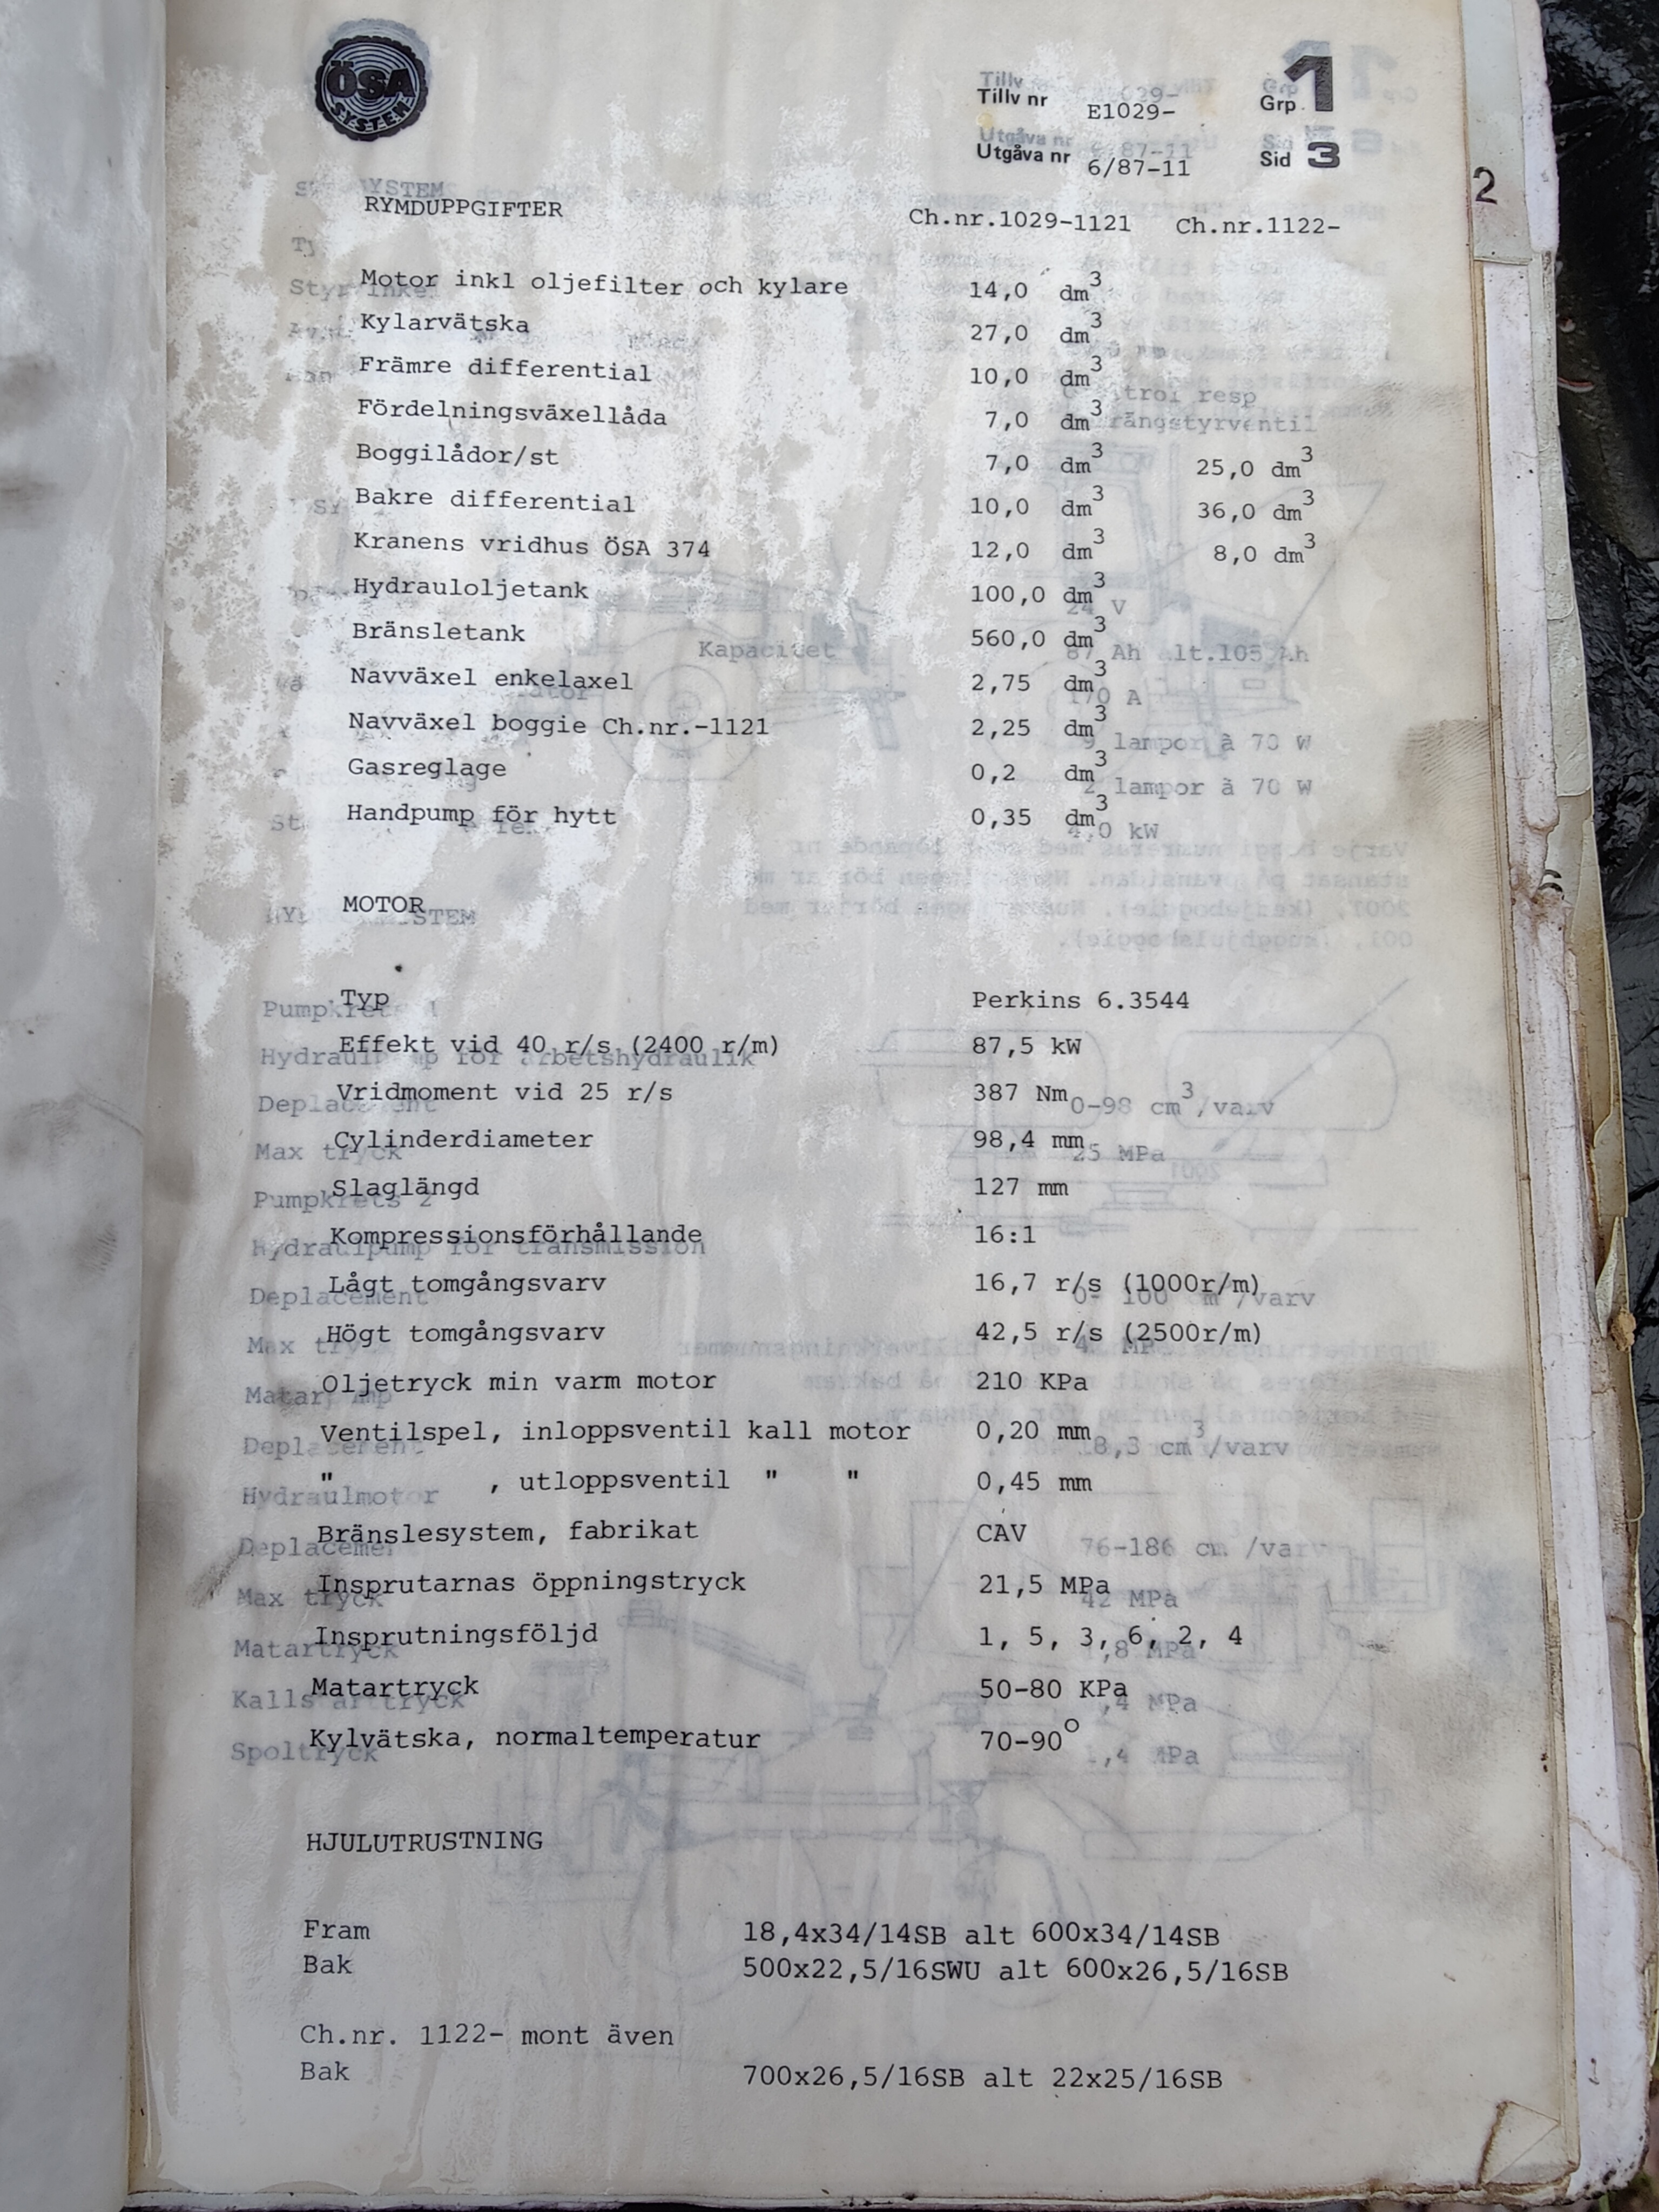 ÖSA
SYSTEM
Tillv nr E1029- Grp 1
Utgåva nr 6/87-11 Sid 3
2
RYMDUPPGIFTER Ch.nr.1029-1121 Ch.nr.1122-
Motor inkl oljefilter och kylare 14,0 dm3
Kylarvätska 27,0 dm3
Främre differential 10,0 dm3
Fördelningsväxellåda 7,0 dm3
Boggilådor/st 7,0 dm3 25,0 dm3
Bakre differential 10,0 dm3 36,0 dm3
Kranens vridhus ÖSA 374 12,0 dm3 8,0 dm3
Hydrauloljetank 100,0 dm3
Bränsletank 560,0 dm3
Navväxel enkelaxel 2,75 dm3
Navväxel boggie Ch.nr.-1121 2,25 dm3
Gasreglage 0,2 dm3
Handpump för hytt 0,35 dm3
MOTOR
Typ Perkins 6.3544
Effekt vid 40 r/s (2400 r/m) 87,5 kW
Vridmoment vid 25 r/s 387 Nm
Cylinderdiameter 98,4 mm
Slaglängd 127 mm
Kompressionsförhållande 16:1
Lågt tomgångsvarv 16,7 r/s (1000r/m)
Högt tomgångsvarv 42,5 r/s (2500r/m)
Oljetryck min varm motor 210 KPa
Ventilspel, inloppsventil kall motor 0,20 mm
" , utloppsventil " " 0,45 mm
Bränslesystem, fabrikat CAV
Insprutarnas öppningstryck 21,5 MPa
Insprutningsföljd 1, 5, 3, 6, 2, 4
Matartryck 50-80 KPa
Kylvätska, normaltemperatur 70-90°
HJULUTRUSTNING
Fram 18,4x34/14SB alt 600x34/14SB
Bak 500x22,5/16SWU alt 600x26,5/16SB
Ch.nr. 1122- mont även
Bak 700x26,5/16SB alt 22x25/16SB